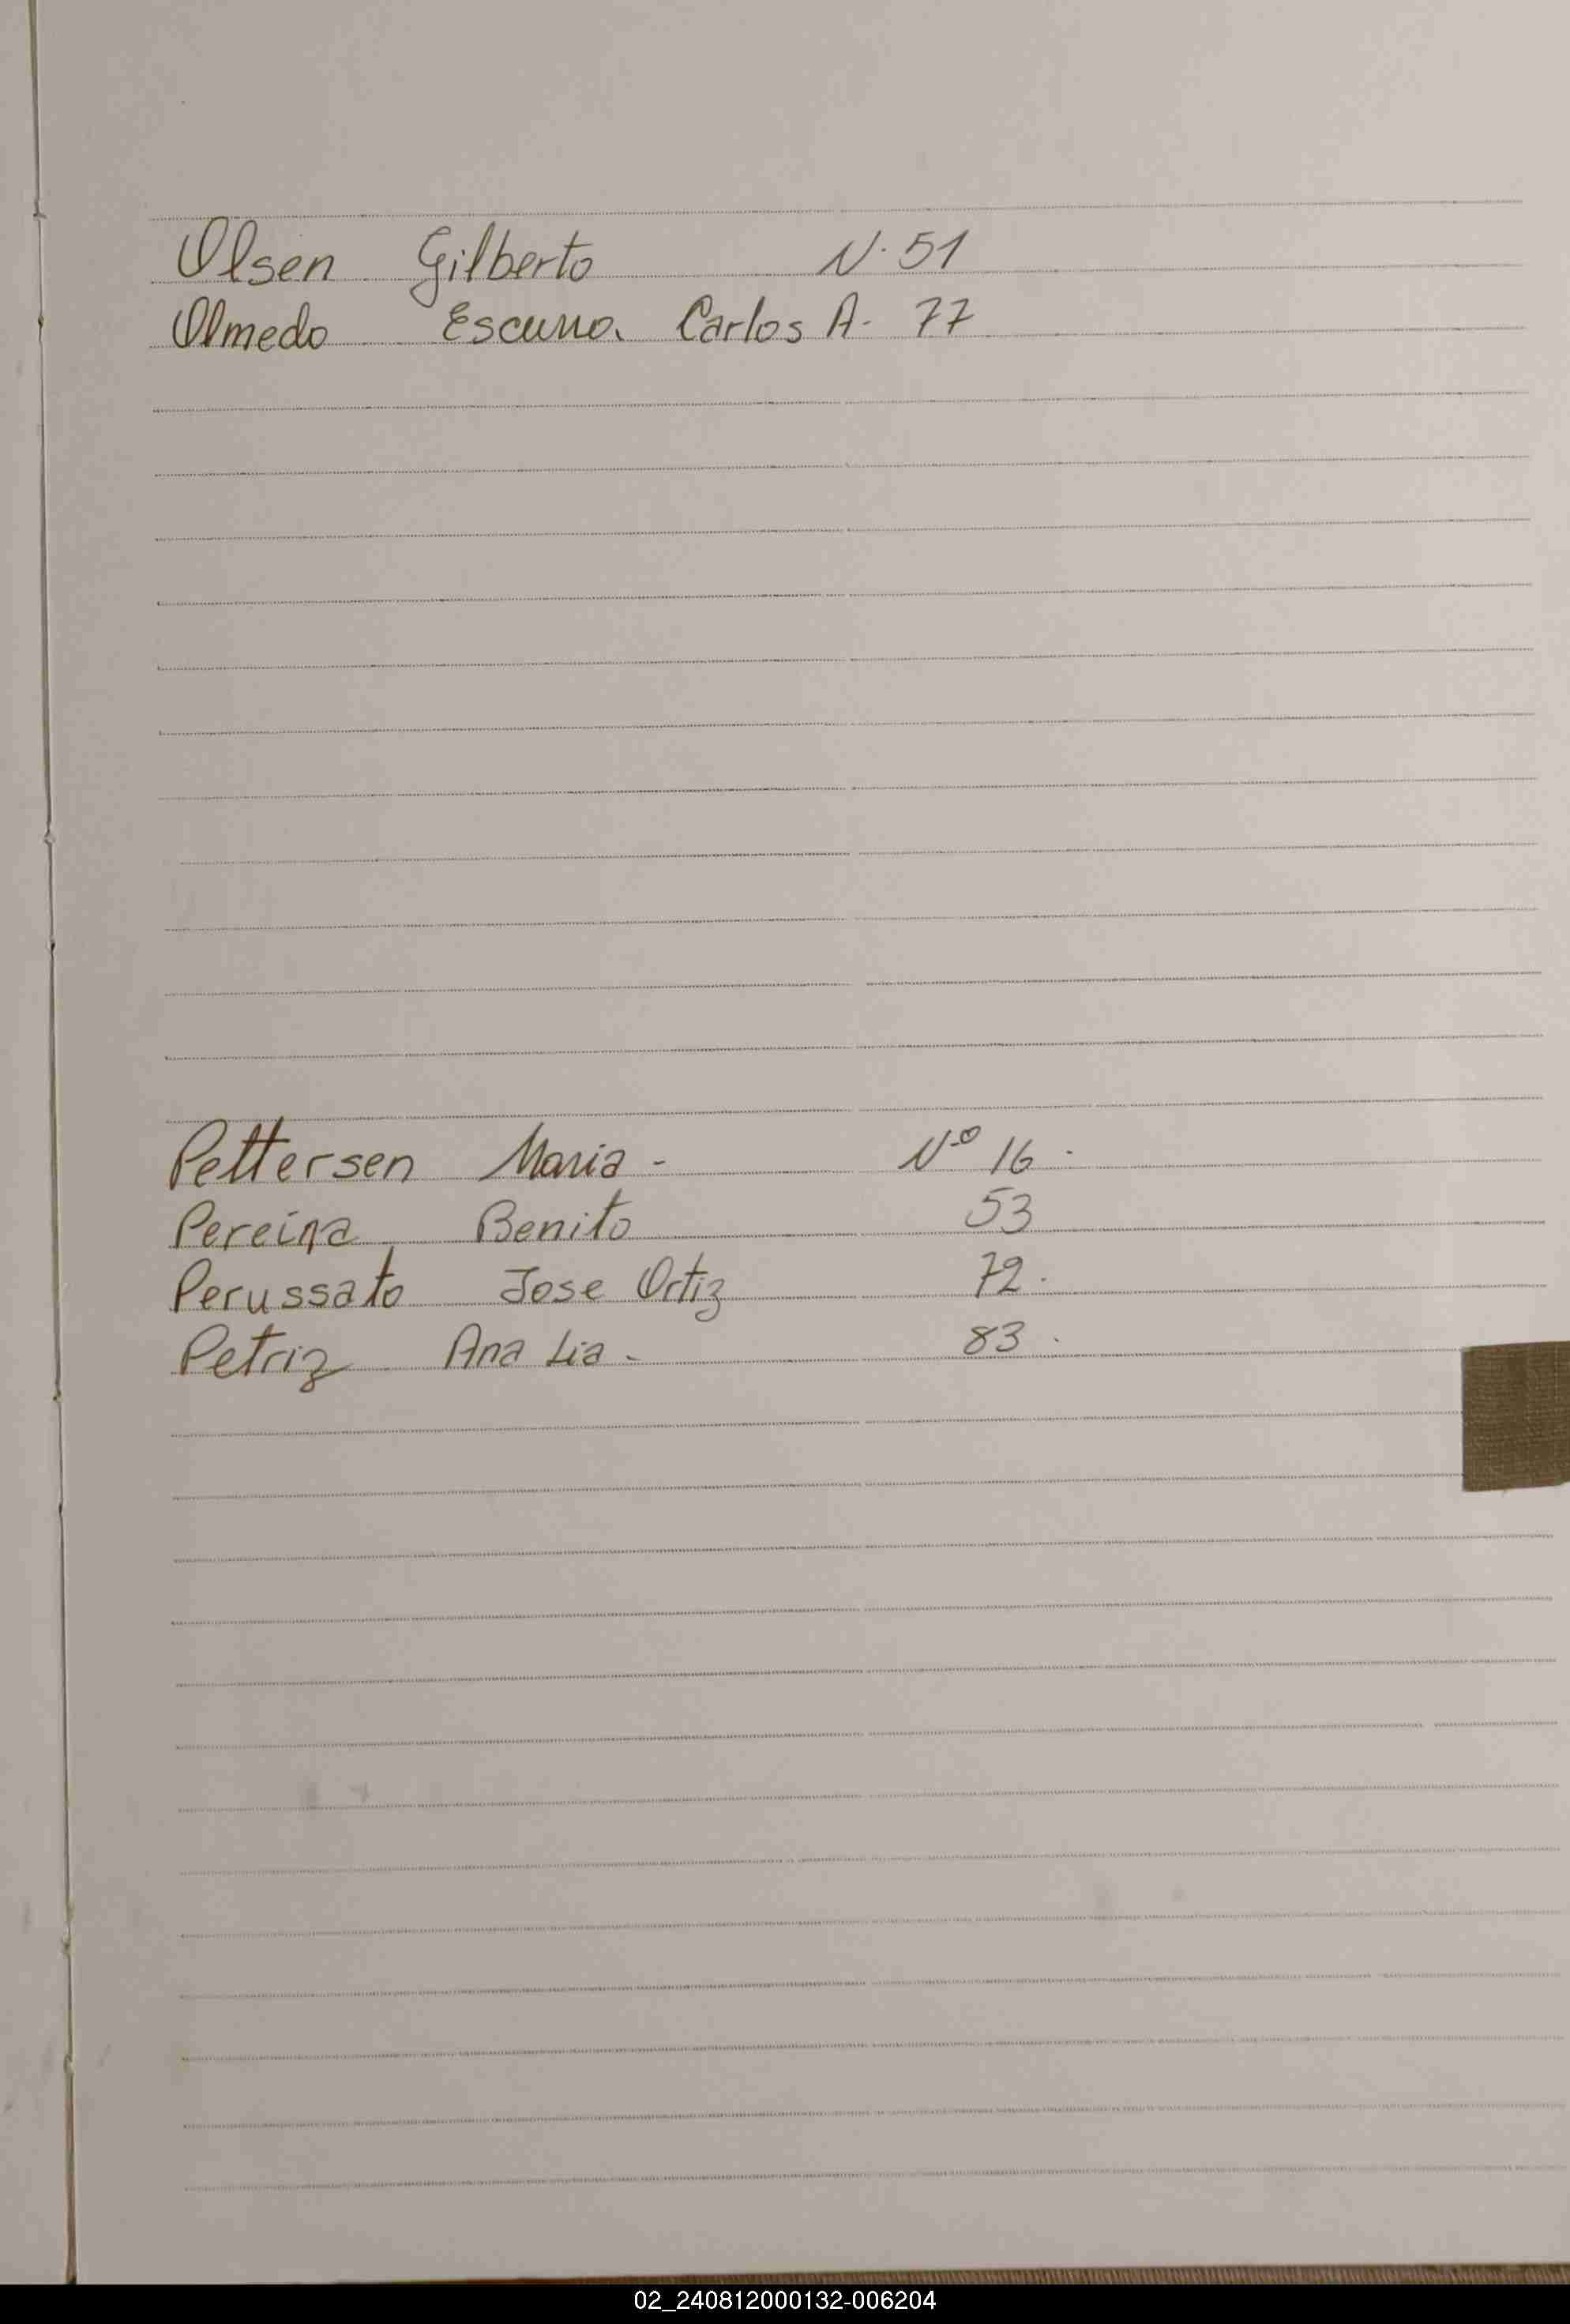 Olsen Gilberto N. 51
Olmedo Carlos A. 77
Pettersen Maria - Nº 16.
Pereira Benito 53
Perussato Jose Ortiz 72.
Petriz Ana Lia - 83.
02_240812000132-006204